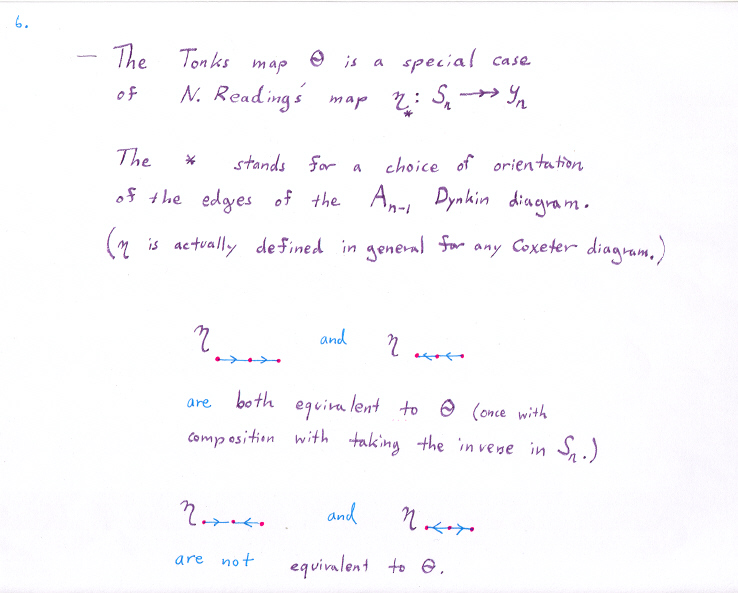 6.
— The Tonks map Θ is a special case
of N. Reading's map η* : Sₙ ↠ Yₙ
The * stands for a choice of orientation
of the edges of the Aₙ₋₁ Dynkin diagram.
(η is actually defined in general for any Coxeter diagram.)
η and η
are both equivalent to Θ (once with
composition with taking the inverse in Sₙ.)
η and η
are not equivalent to Θ.